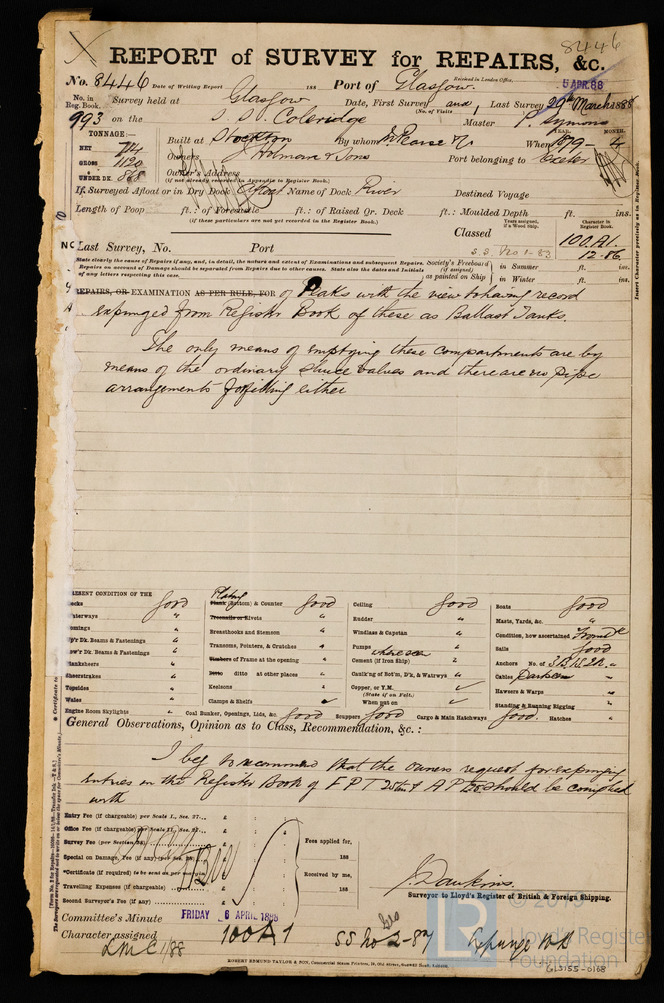 8446
REPORT of SURVEY for REPAIRS, &c.
No. 8446 Date of Writing Report 188 Port of Glasgow. Received in London Office,
5 APR. 88
No. in Reg. Book. Survey held at Glasgow Date, First Survey and, Last Survey 29th March 1888
(No. of Visits
993 on the S.S. Coleridge Master P. Symons
TONNAGE:— YEAR. MONTH.
Built at Stockton By whom When 1879 - 4
NET 714
GROSS 1120 Owners & Sons Port belonging to Exeter
UNDER DK. 868 Owner's Address
(if not already recorded in Appendix to Register Book.)
If Surveyed Afloat or in Dry Dock Afloat Name of Dock River Destined Voyage
Length of Poop ft.: of Forecastle ft.: of Raised Qr. Deck ft.: Moulded Depth ft. ins.
(if these particulars are not yet recorded in the Register Book.)
Years assigned, if a Wood Ship. Character in Register Book.
Classed 100.A1.
S.S. No 1-83 12.86.
Last Survey, No. Port
State clearly the cause of Repairs if any, and, in detail, the nature and extent of Examinations and subsequent Repairs.
Repairs on account of Damage should be separated from Repairs due to other causes. State also the dates and Initials
of any letters respecting this case.
Society's Freeboard (if assigned) as painted on Ship { in Summer ft. ins.
in Winter ft. ins.
REPAIRS, OR EXAMINATION AS PER RULE, FOR of Peaks with the view to having record
expunged from Register Book of these as Ballast Tanks.
The only means of emptying these compartments are by
means of the ordinary Sluice Valves and there are no pipe
arrangements for filling either
PRESENT CONDITION OF THE
Decks good
Waterways "
Comings "
Up'r Dk. Beams & Fastenings "
Low'r Dk. Beams & Fastenings "
Planksheers "
Sheerstrakes "
Topsides "
Wales "
Engine Room Skylights "
Plating
Plank (Bottom) & Counter good
Treenails or Rivets "
Breasthooks and Stemson "
Transoms, Pointers, & Crutches "
Timbers of Frame at the opening "
Ditto ditto at other places "
Keelsons "
Clamps & Shelfs
Coal Bunker, Openings, Lids, &c. good
Ceiling good
Rudder "
Windlass & Capstan "
Pumps where seen
Cement (if Iron Ship) "
Caulk'g of Bot'm, D'k, & Watrwys
Copper, or Y.M.
(State if on Felt.)
When put on
Scuppers good Cargo & Main Hatchways good. Hatches "
Boats good
Masts, Yards, &c. "
Condition, how ascertained From Dk
Sails good
Anchors No. of 3B. 1S. 2K. "
Cables
Hawsers & Warps "
Standing & Running Rigging "
General Observations, Opinion as to Class, Recommendation, &c.:
I beg to recommend that the owners request for expunging
entries in the Register Book of F P T & A P T should be complied
with
Entry Fee (if chargeable) per Scale I., Sec. 27... £
Office Fee (if chargeable) per Scale II., Sec. 27... £
Survey Fee (per Section 28) £
Special on Damage, Fee (if any) (per Sec. 28) £
*Certificate (if required) to be sent as per margin
Travelling Expenses (if chargeable) £
Second Surveyor's Fee (if any) £
Fees applied for, 188
Received by me, 188
J. Dawkins.
Surveyor to Lloyd's Register of British & Foreign Shipping.
Committee's Minute FRIDAY 6 APRIL 1888
Character assigned 100A1 SS No 2-87 Expunge
LMC 1/88
ROBERT EDMUND TAYLOR & SON, Commercial Steam Printers, 19, Old Street, Goswell Road, London.
Insert Character precisely as in Register Book.
© 2019
Lloyd's Register
Foundation
LR
GLS155-0168